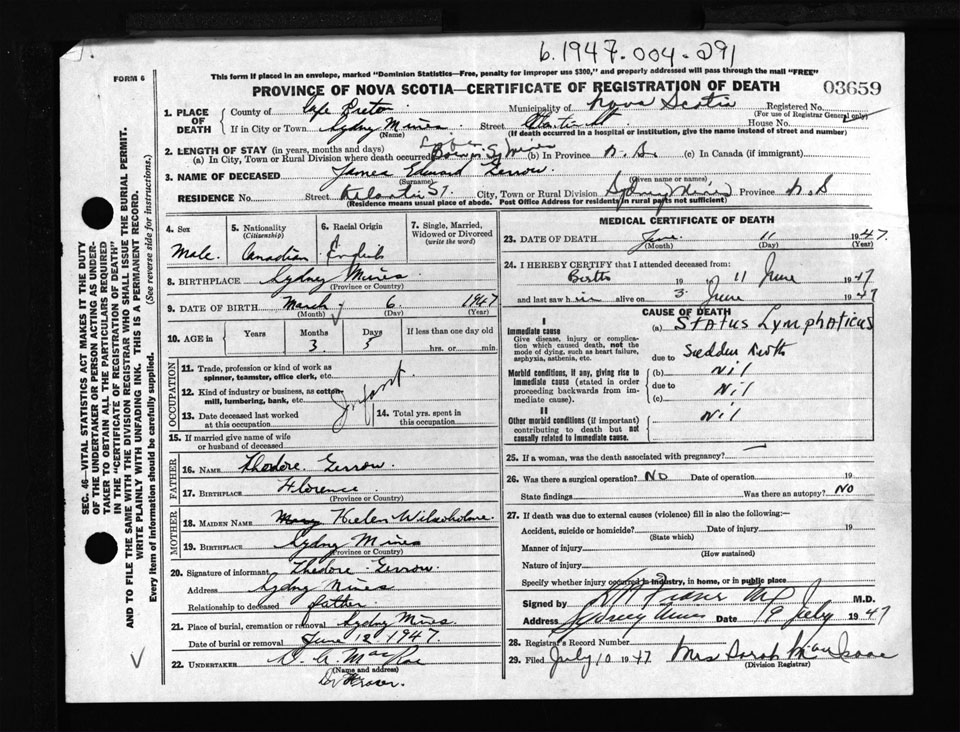 6.1947.004-291
FORM 6
This form if placed in an envelope, marked "Dominion Statistics—Free, penalty for improper use $300," and properly addressed will pass through the mail "FREE"
PROVINCE OF NOVA SCOTIA—CERTIFICATE OF REGISTRATION OF DEATH
03659
SEC. 46—VITAL STATISTICS ACT MAKES IT THE DUTY
OF THE UNDERTAKER OR PERSON ACTING AS UNDER-
TAKER TO OBTAIN ALL THE PARTICULARS REQUIRED
IN THE "CERTIFICATE OF REGISTRATION OF DEATH"
AND TO FILE THE SAME WITH THE DIVISION REGISTRAR WHO SHALL ISSUE THE BURIAL PERMIT.
WRITE PLAINLY WITH UNFADING INK. THIS IS A PERMANENT RECORD.
Every item of information should be carefully supplied. (See reverse side for instructions.)
1. PLACE OF DEATH
County of Cape Breton Municipality of Nova Scotia Registered No.
(For use of Registrar General only)
If in City or Town Sydney Mines Street House No.
(Name) (If death occurred in a hospital or institution, give the name instead of street and number)
2. LENGTH OF STAY (in years, months and days)
(a) In City, Town or Rural Division where death occurred (b) In Province N.S. (c) In Canada (if immigrant)
3. NAME OF DECEASED James Edward Gerrow
(Surname) (Given name or names)
RESIDENCE No. Street Atlantic St. City, Town or Rural Division Sydney Mines Province N.S
(Residence means usual place of abode. Post Office Address for residents in rural parts not sufficient)
4. Sex
Male
5. Nationality
(Citizenship)
Canadian
6. Racial Origin
English
7. Single, Married, Widowed or Divorced
(write the word)
8. BIRTHPLACE Sydney Mines
(Province or Country)
9. DATE OF BIRTH March 6 1947
(Month) (Day) (Year)
10. AGE in Years Months Days If less than one day old
3. 5 hrs. or min.
OCCUPATION
11. Trade, profession or kind of work as spinner, teamster, office clerk, etc.
12. Kind of industry or business, as cotton mill, lumbering, bank, etc.
Infant
13. Date deceased last worked at this occupation
14. Total yrs. spent in this occupation
15. If married give name of wife or husband of deceased
FATHER
16. NAME Theodore Gerrow.
17. BIRTHPLACE Florence
(Province or Country)
MOTHER
18. MAIDEN NAME Mary Helen Wilsoholme
19. BIRTHPLACE Sydney Mines
(Province or Country)
20. Signature of informant Theodore Gerrow.
Address Sydney Mines
Relationship to deceased father
21. Place of burial, cremation or removal Sydney Mines.
Date of burial or removal June 13 1947.
22. UNDERTAKER D. A. MacRae
(Name and address)
Dr Fraser.
MEDICAL CERTIFICATE OF DEATH
23. DATE OF DEATH June 11 1947.
(Month) (Day) (Year)
24. I HEREBY CERTIFY that I attended deceased from:
Birth 19 to 11 June 1947
and last saw h im alive on 3. June 1947
CAUSE OF DEATH
I
Immediate cause
Give disease, injury or complication which caused death, not the mode of dying, such as heart failure, asphyxia, asthenia, etc.
(a) Status Lymphaticus
due to Sudden Death
Morbid conditions, if any, giving rise to immediate cause (stated in order proceeding backwards from immediate cause).
(b) Nil
due to Nil
(c)
II
Other morbid conditions (if important) contributing to death but not causally related to immediate cause.
Nil
25. If a woman, was the death associated with pregnancy? —
26. Was there a surgical operation? NO Date of operation 19
State findings Was there an autopsy? NO
27. If death was due to external causes (violence) fill in also the following:—
Accident, suicide or homicide? Date of injury 19
(State which)
Manner of injury
(How sustained)
Nature of injury
Specify whether injury occurred in industry, in home, or in public place
Signed by Fraser MD M.D.
Address Sydney Mines Date 9 July 1947
28. Registrar's Record Number
29. Filed July 10 1947 Mrs Sarah MacIsaac
(Division Registrar)